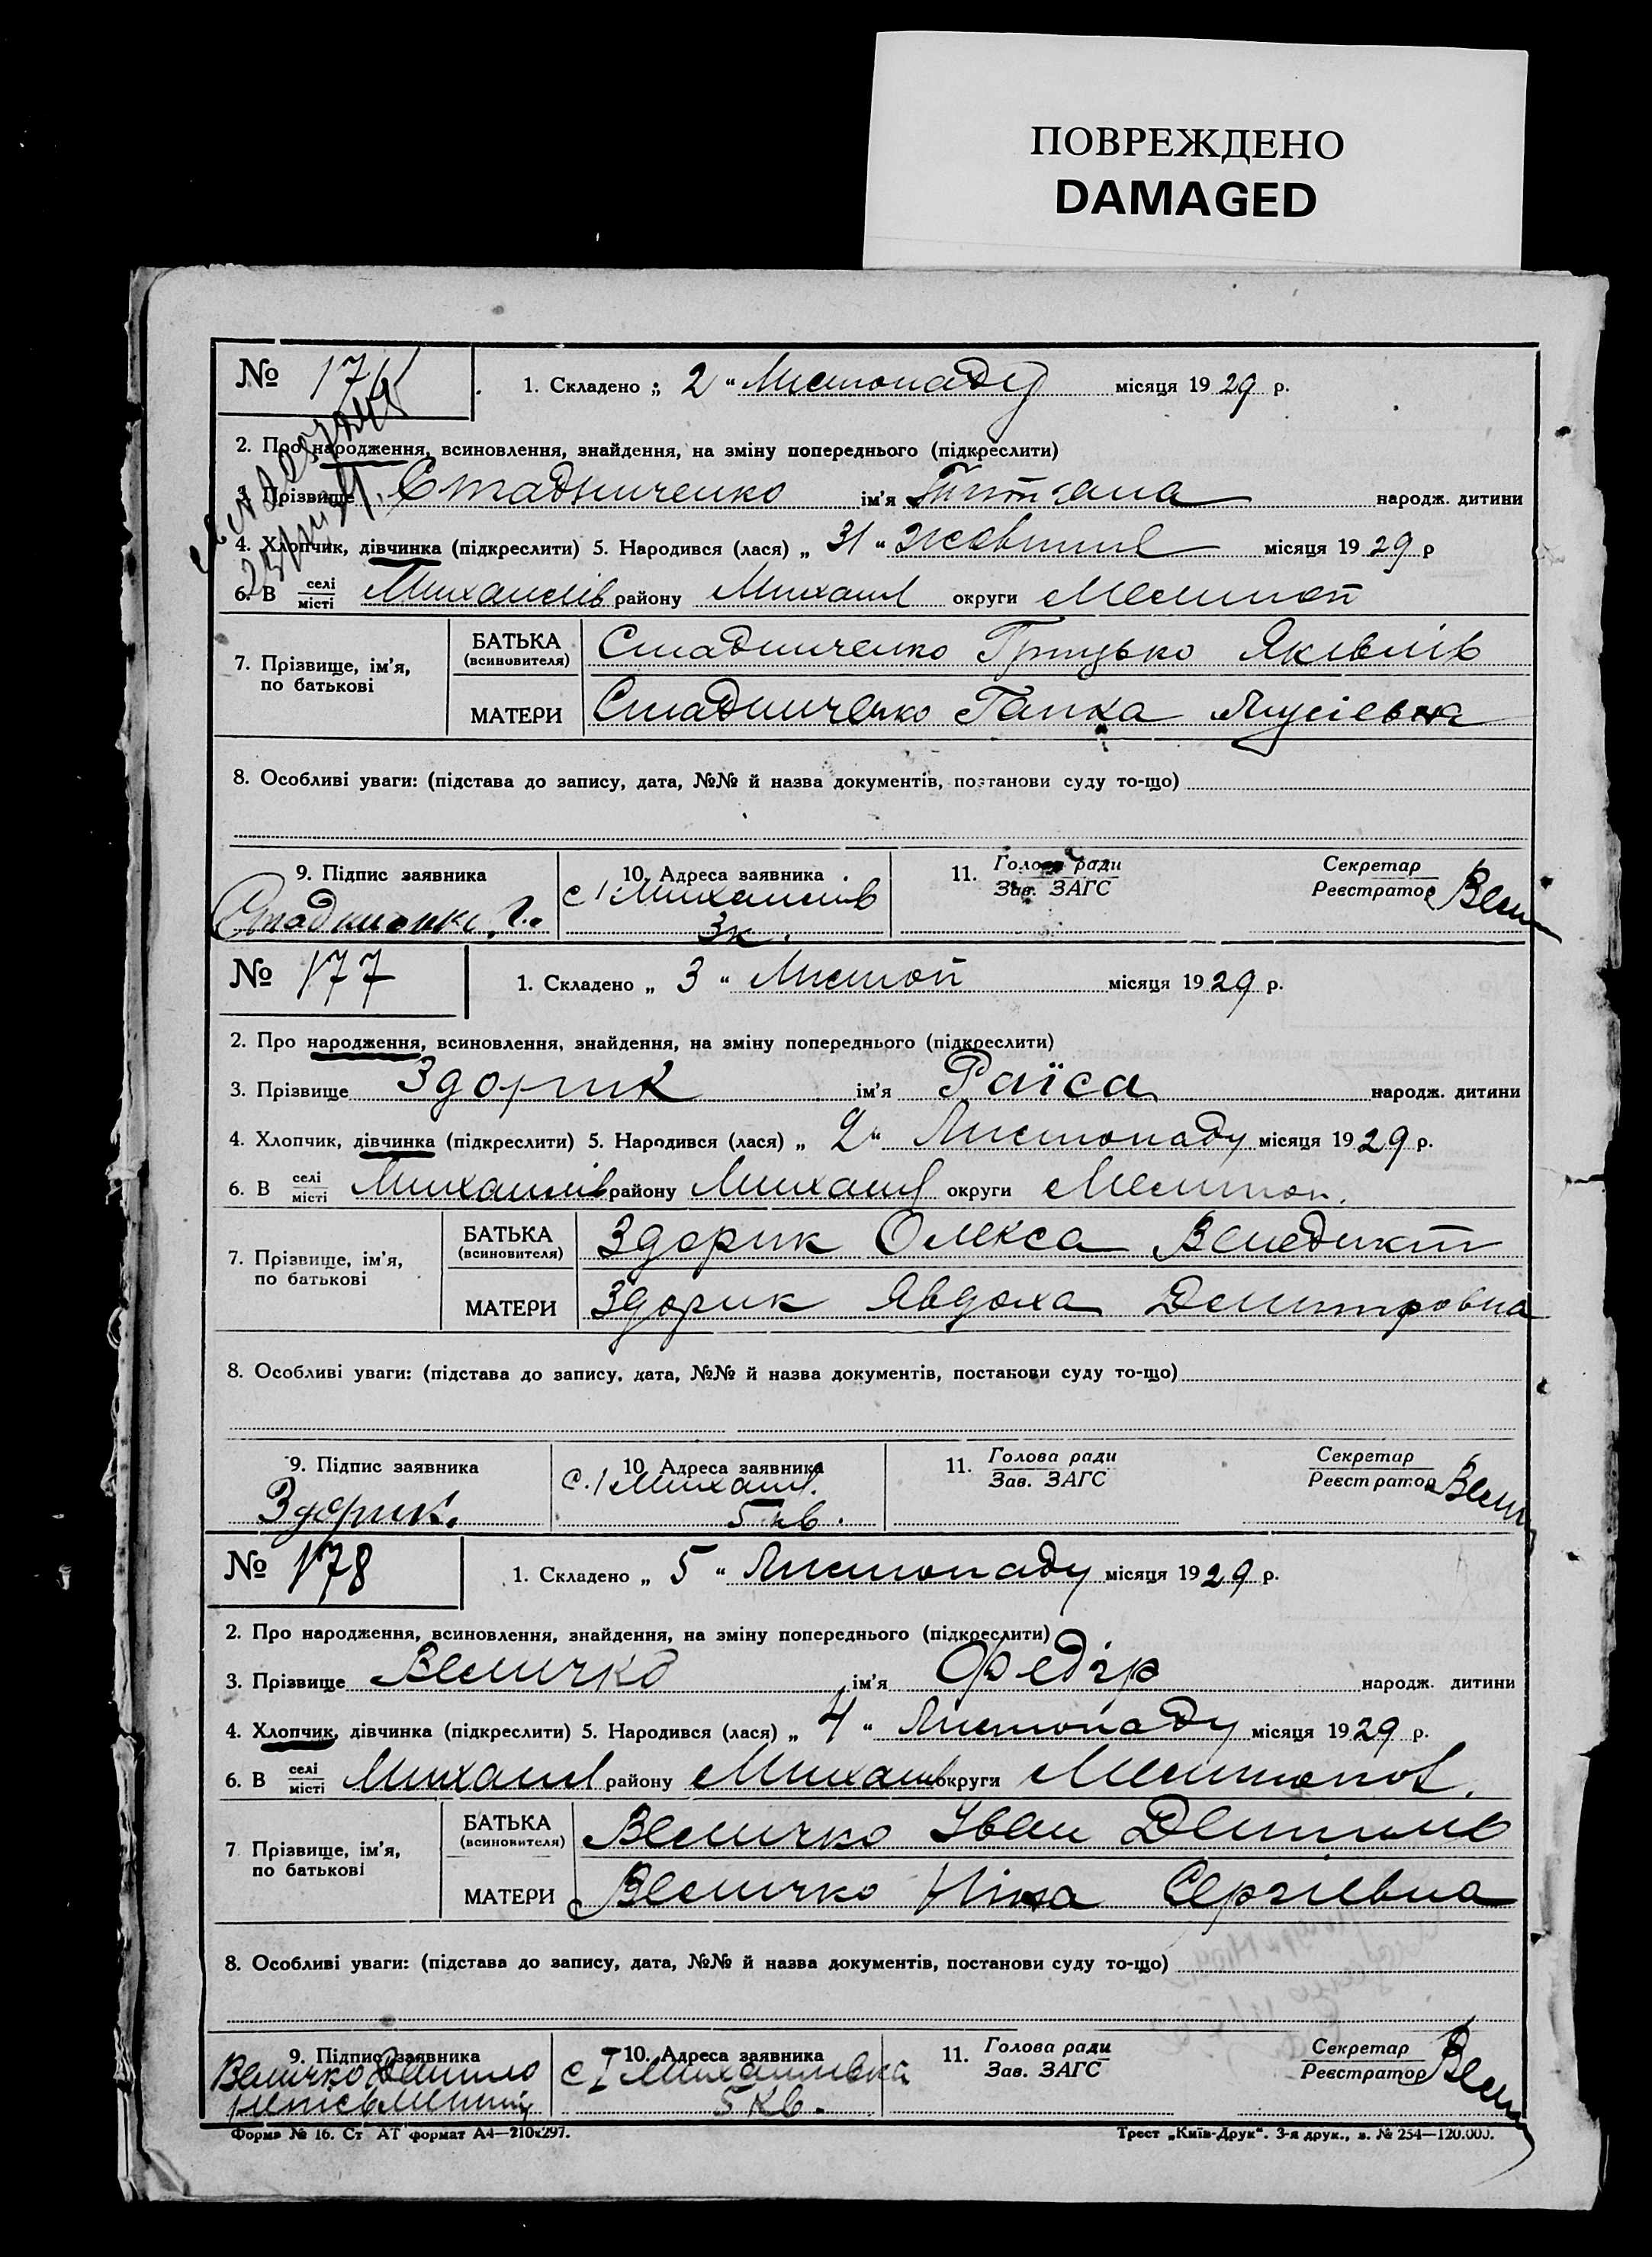 ПОВРЕЖДЕНО
DAMAGED
№ 176 1. Складено „ 2 “ Листопаду місяця 1929 р.
2. Про народження, всиновлення, знайдення, на зміну попереднього (підкреслити)
3. Прізвище Стадниченко ім’я народж. дитини
4. Хлопчик, дівчинка (підкреслити) 5. Народився (лася) „ 31 “ Жовтня місяця 1929 р
6. В селі місті Михайлів району Михайл округи Мелитоп
7. Прізвище, ім’я, по батькові
БАТЬКА (всиновителя) Стадниченко Грицько Яковлів
МАТЕРИ Стадниченко Гапка Мусіевна
8. Особливі уваги: (підстава до запису, дата, №№ й назва документів, постанови суду то-що)
9. Підпис заявника 10. Адреса заявника 11. Голова ради Зав. ЗАГС Секретар Реєстратор
с 1 Михайлів
3 к.
№ 177 1. Складено „ 3 “ Листоп місяця 1929 р.
2. Про народження, всиновлення, знайдення, на зміну попереднього (підкреслити)
3. Прізвище Здорик ім’я Раїса народж. дитини
4. Хлопчик, дівчинка (підкреслити) 5. Народився (лася) „ 2 “ Листопаду місяця 1929 р.
6. В селі місті Михайлів району Михайл округи Мелитоп.
7. Прізвище, ім’я, по батькові
БАТЬКА (всиновителя) Здорик Олекса Венедикт
МАТЕРИ Здорик Явдоха Дмитровна
8. Особливі уваги: (підстава до запису, дата, №№ й назва документів, постанови суду то-що)
9. Підпис заявника 10. Адреса заявника 11. Голова ради Зав. ЗАГС Секретар Реєстратор
Здорик. с. 1 Михайл.
5 кв.
№ 178 1. Складено „ 5 “ Листопаду місяця 1929 р.
2. Про народження, всиновлення, знайдення, на зміну попереднього (підкреслити)
3. Прізвище Величко ім’я Федір народж. дитини
4. Хлопчик, дівчинка (підкреслити) 5. Народився (лася) „ 4 “ Листопаду місяця 1929 р.
6. В селі місті Михайл району Михайлів округи Мелитопол.
7 Прізвище, ім’я, по батькові
БАТЬКА (всиновителя) Величко Іван
МАТЕРИ Величко Ніна Сергіевна
8. Особливі уваги: (підстава до запису, дата, №№ й назва документів, постанови суду то-що)
9. Підпис заявника 10. Адреса заявника 11. Голова ради Зав. ЗАГС Секретар Реєстратор
Величко с I Михайлівка
5 кв.
Форма № 16. Ст АТ формат А4—210х297. Трест „Київ-Друк“. 3-я друк., з. № 254—120.000.